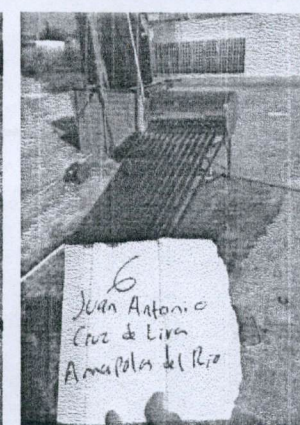 6
Juan Antonio
Cruz de Lira
Amapolas del Rio